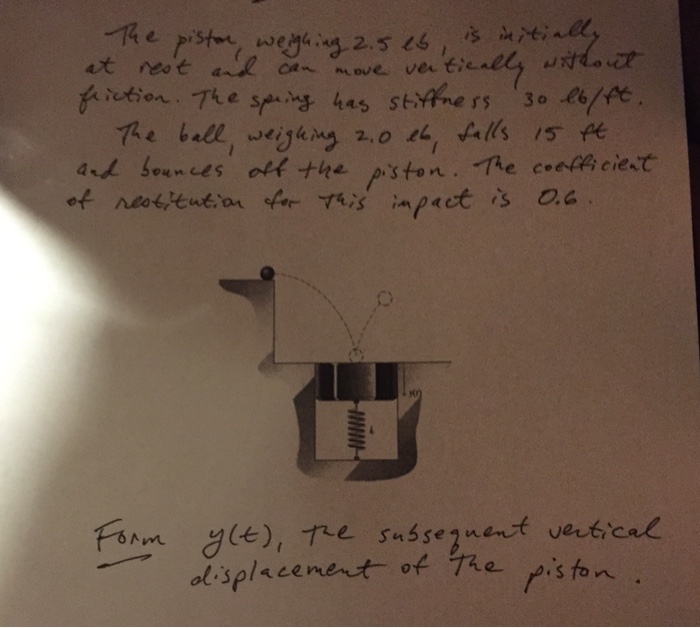 The piston, weighing 2.5 lb, is initially
at rest and can move vertically without
friction. The spring has stiffness 30 lb/ft.
The ball, weighing 2.0 lb, falls 15 ft
and bounces off the piston. The coefficient
of restitution for this impact is 0.6.
y(t)
k
Form y(t), the subsequent vertical
displacement of the piston.